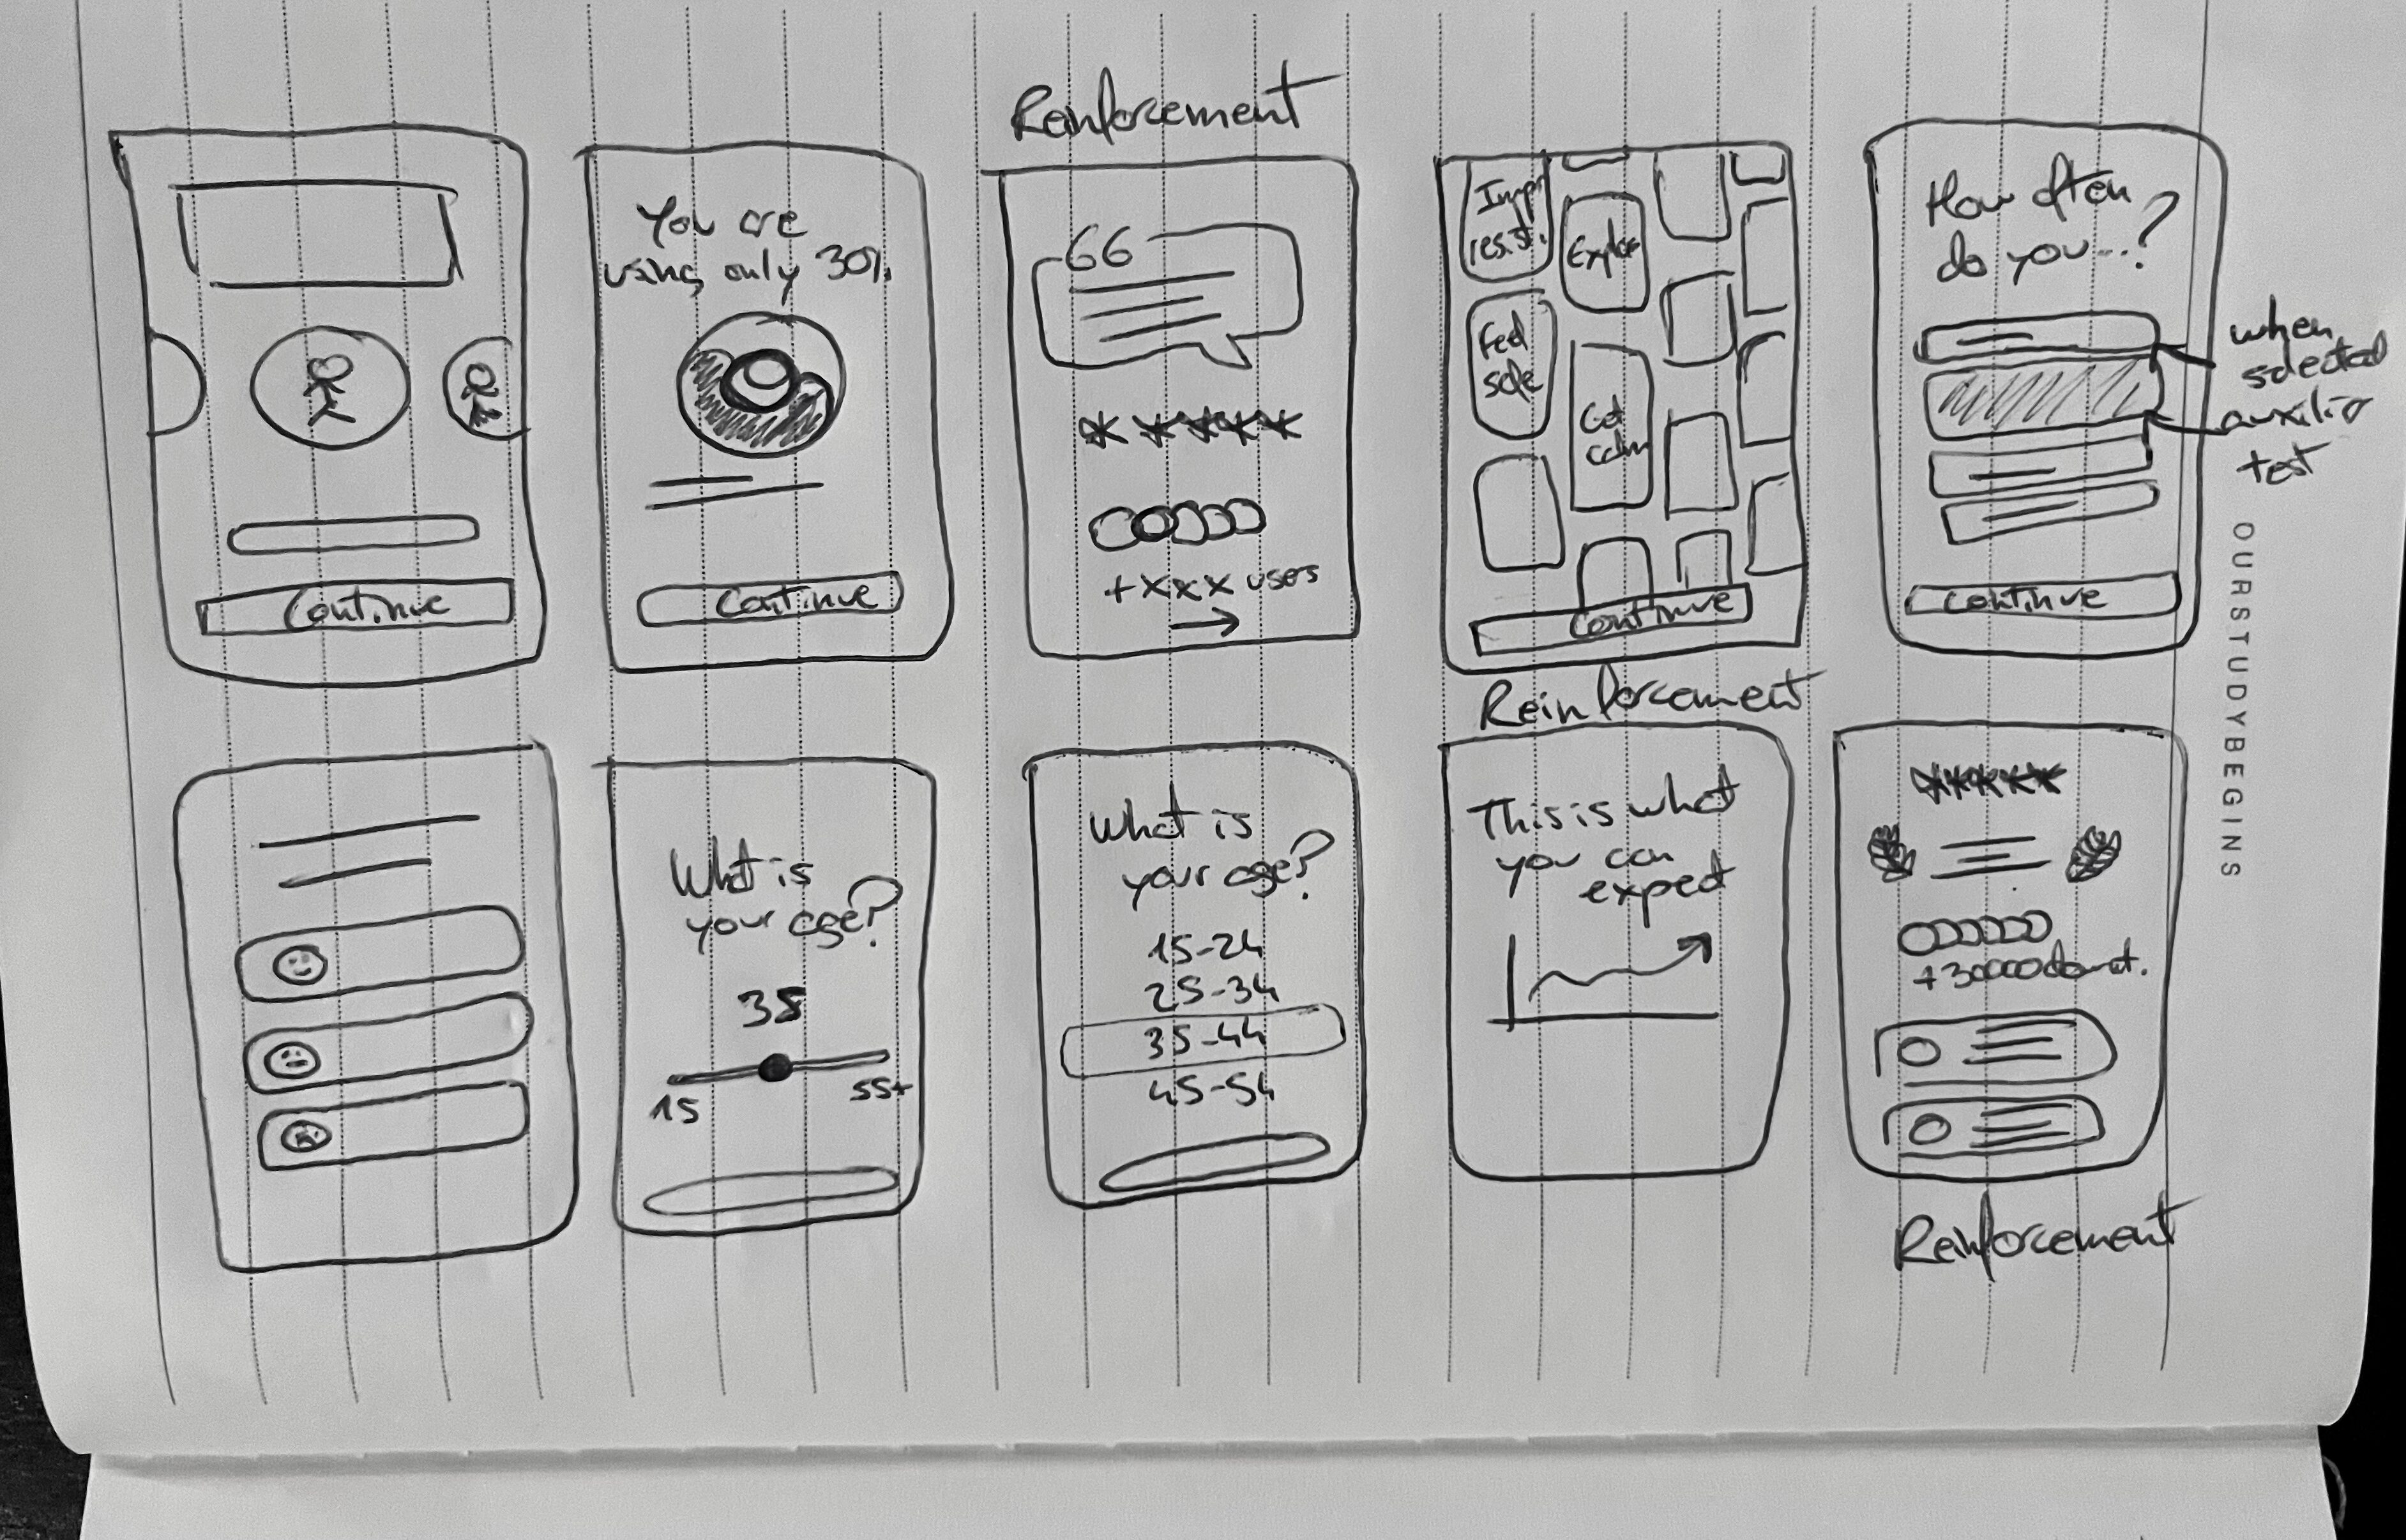 Continue
You are
using only 30%
Continue
Reinforcement
66
+xxx users
Impr
resist.
Explore
Feel
safe
Get
calm
Continue
How often
do you...?
when
selected
Continue
OURSTUDYBEGINS
What is
your age?
38
15
55+
What is
your age?
15-24
25-34
35-44
45-54
Reinforcement
This is what
you can
expect
Reinforcement